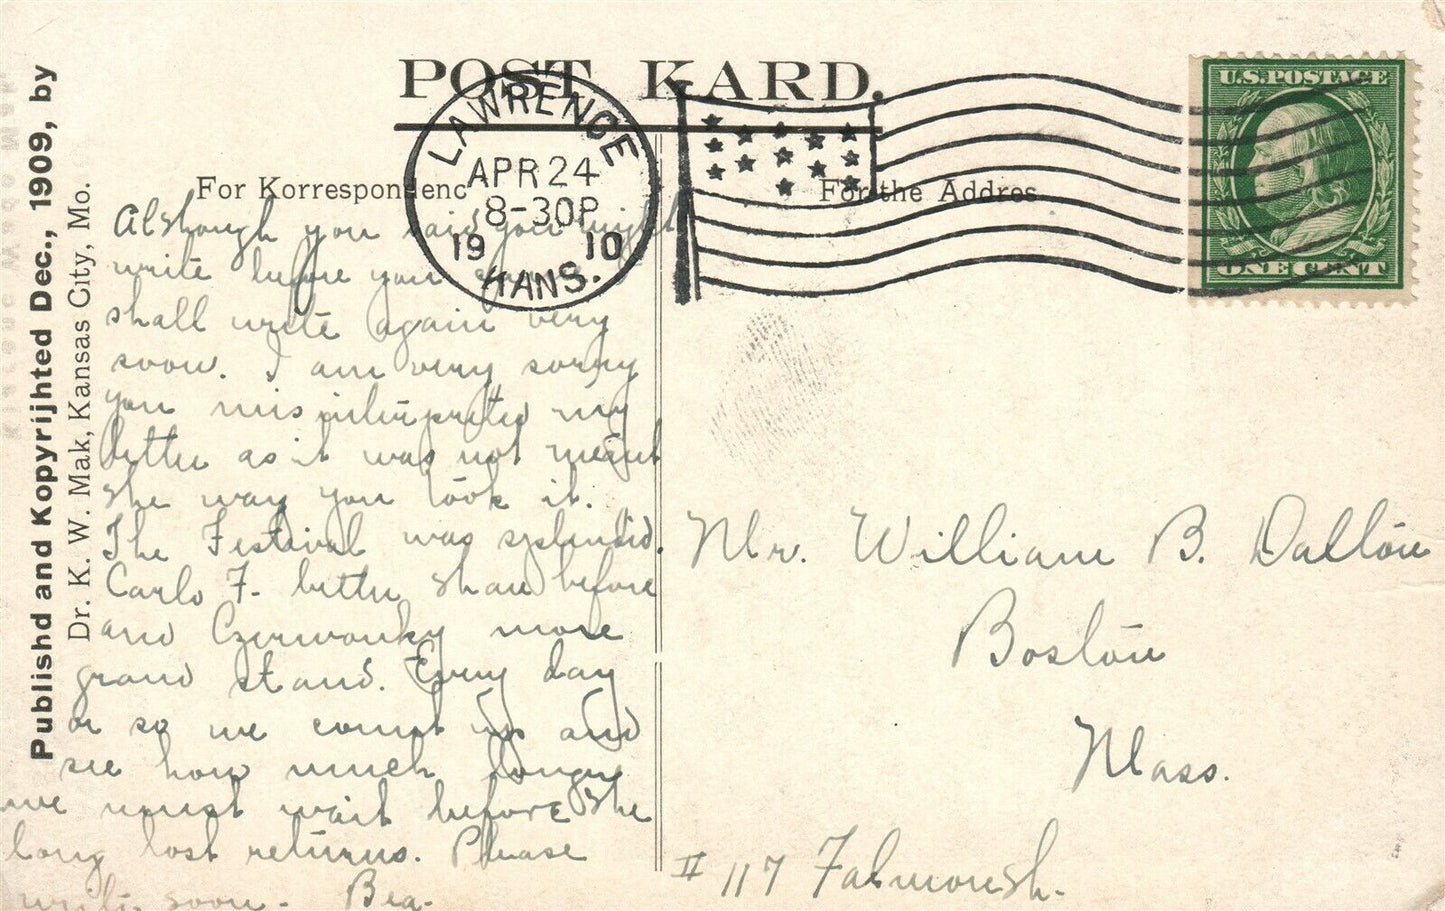 POST KARD.
Publishd and Kopyrijhted Dec., 1909, by
Dr. K. W. Mak, Kansas City, Mo.
For Korrespondenc
For the Addres
LAWRENCE
APR 24
8-30P
1910
KANS.
U.S. POSTAGE
ONE CENT
Although you said you might
write before you I
shall write again very
soon. I am very sorry
you misinterpreted my
letter as it was not meant
the way you took it.
The Festival was splendid.
Carlo F. better than before
and Czerwonky more
grand stand. Every day
or so we count up and
see how much longer
we must wait before the
long lost returns. Please
write soon. Bea.
Mr. William B. Dalton
Boston
Mass.
# 117 Falmouth.